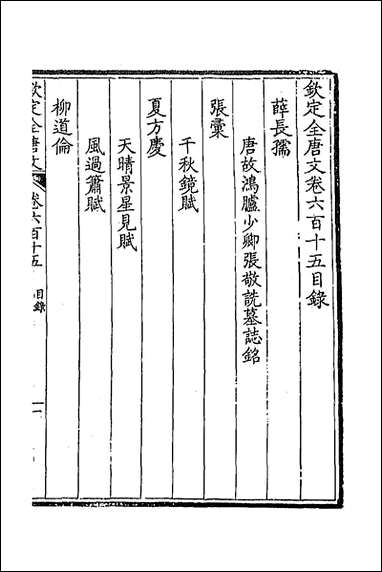 欽定全唐文卷六百十五目錄
薛長孺
唐故鴻臚少卿張敬詵墓誌銘
張彙
千秋鏡賦
夏方慶
天晴景星見賦
風過簫賦
柳道倫
欽定全唐文 卷六百十五 目錄 一